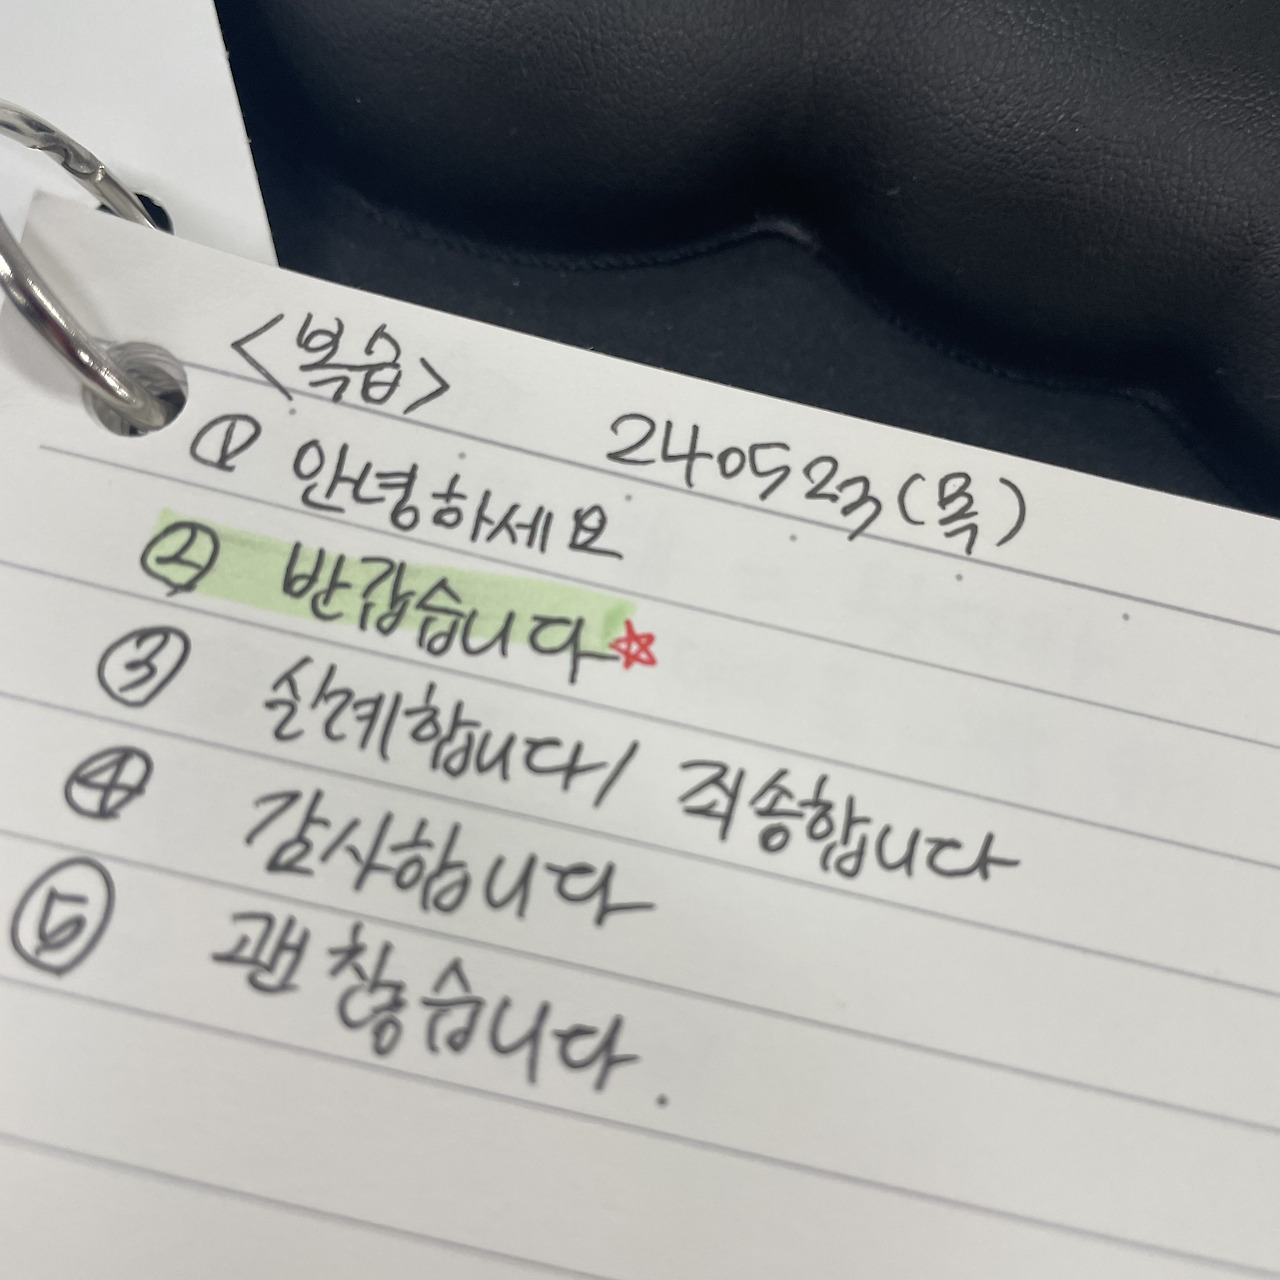 <복습>
240523(목)
① 안녕하세요
② 반갑습니다☆
③ 실례합니다/ 죄송합니다
④ 감사합니다
⑤ 괜찮습니다.